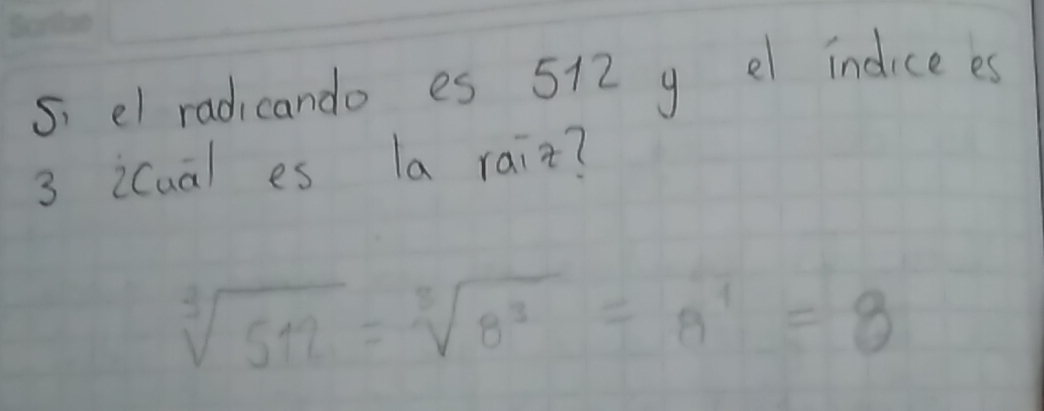 Si el radicando es 512 y el índice es
3 ¿Cuál es la raíz?
∛512 = ∛8³ = 8¹ = 8